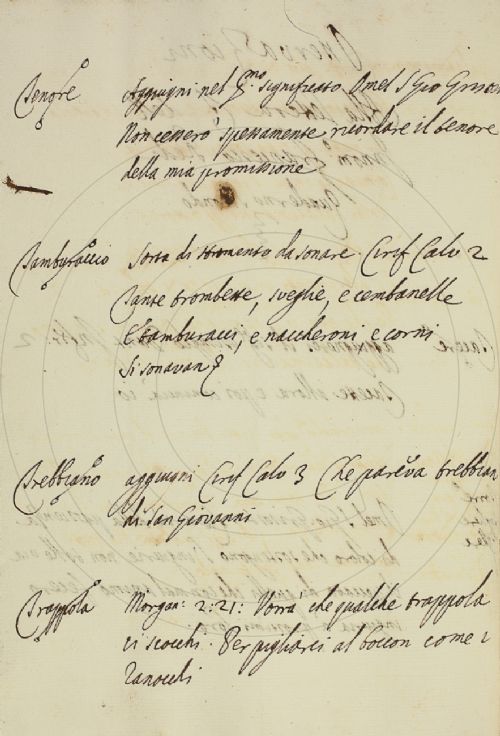 Tenore Aggiugni nel p.mo significato Omel S Gio Grisos
Non cesserò spessamente ricordare il tenore
della mia promissione
Tamburaccio Sorta di stromento da sonare. Cirif Calv 2
Tante trombette, sveglie, e cembanelle
E tamburacci, e naccheroni, e corni
Si sonavan
Trebbiano aggiugni Cirif Calv 3 Che pareva trebbian
di San Giovanni
Trappola Morgan: 2:21: Vorrà che qualche trappola
ci scocchi. Per pigliarci al boccon come i
ranocchi